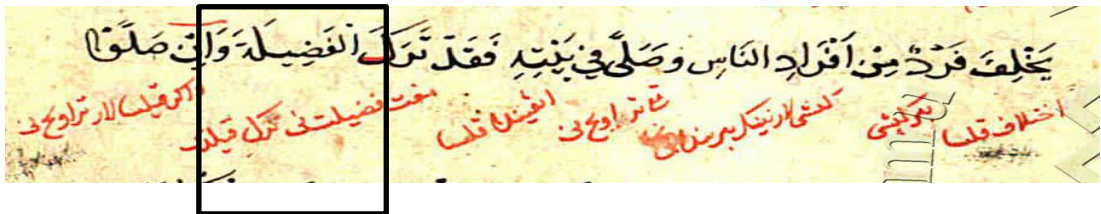 يَخْلِفَ فَرْدٌ مِنْ اَفْرَادِ النَّاسِ وَصَلَّى فِي بَيْتِهِ فَقَدْ تَرَكَ الْفَضِيلَةَ وَاِنْ صَلَّوْا
اختلاف قلسا بر كشى كشى لارنينك بريندىن تراويح نى قلسا فضيلت نى ترك قيلدى قيلسالار تراويح نى